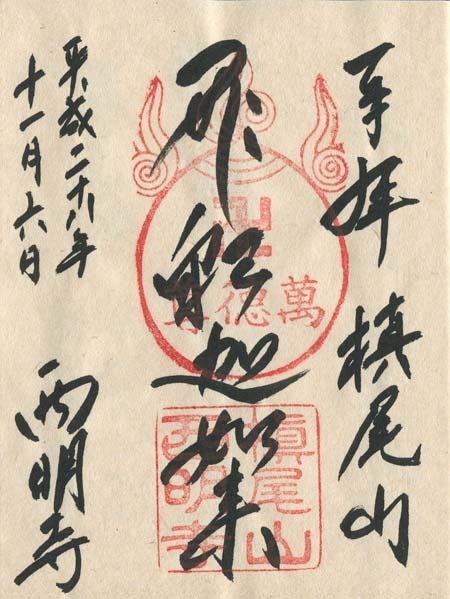 奉拝 槇尾山
釈迦如来
平成二十八年
十一月六日
西明寺
卍
萬徳尊
槇尾山
西明寺